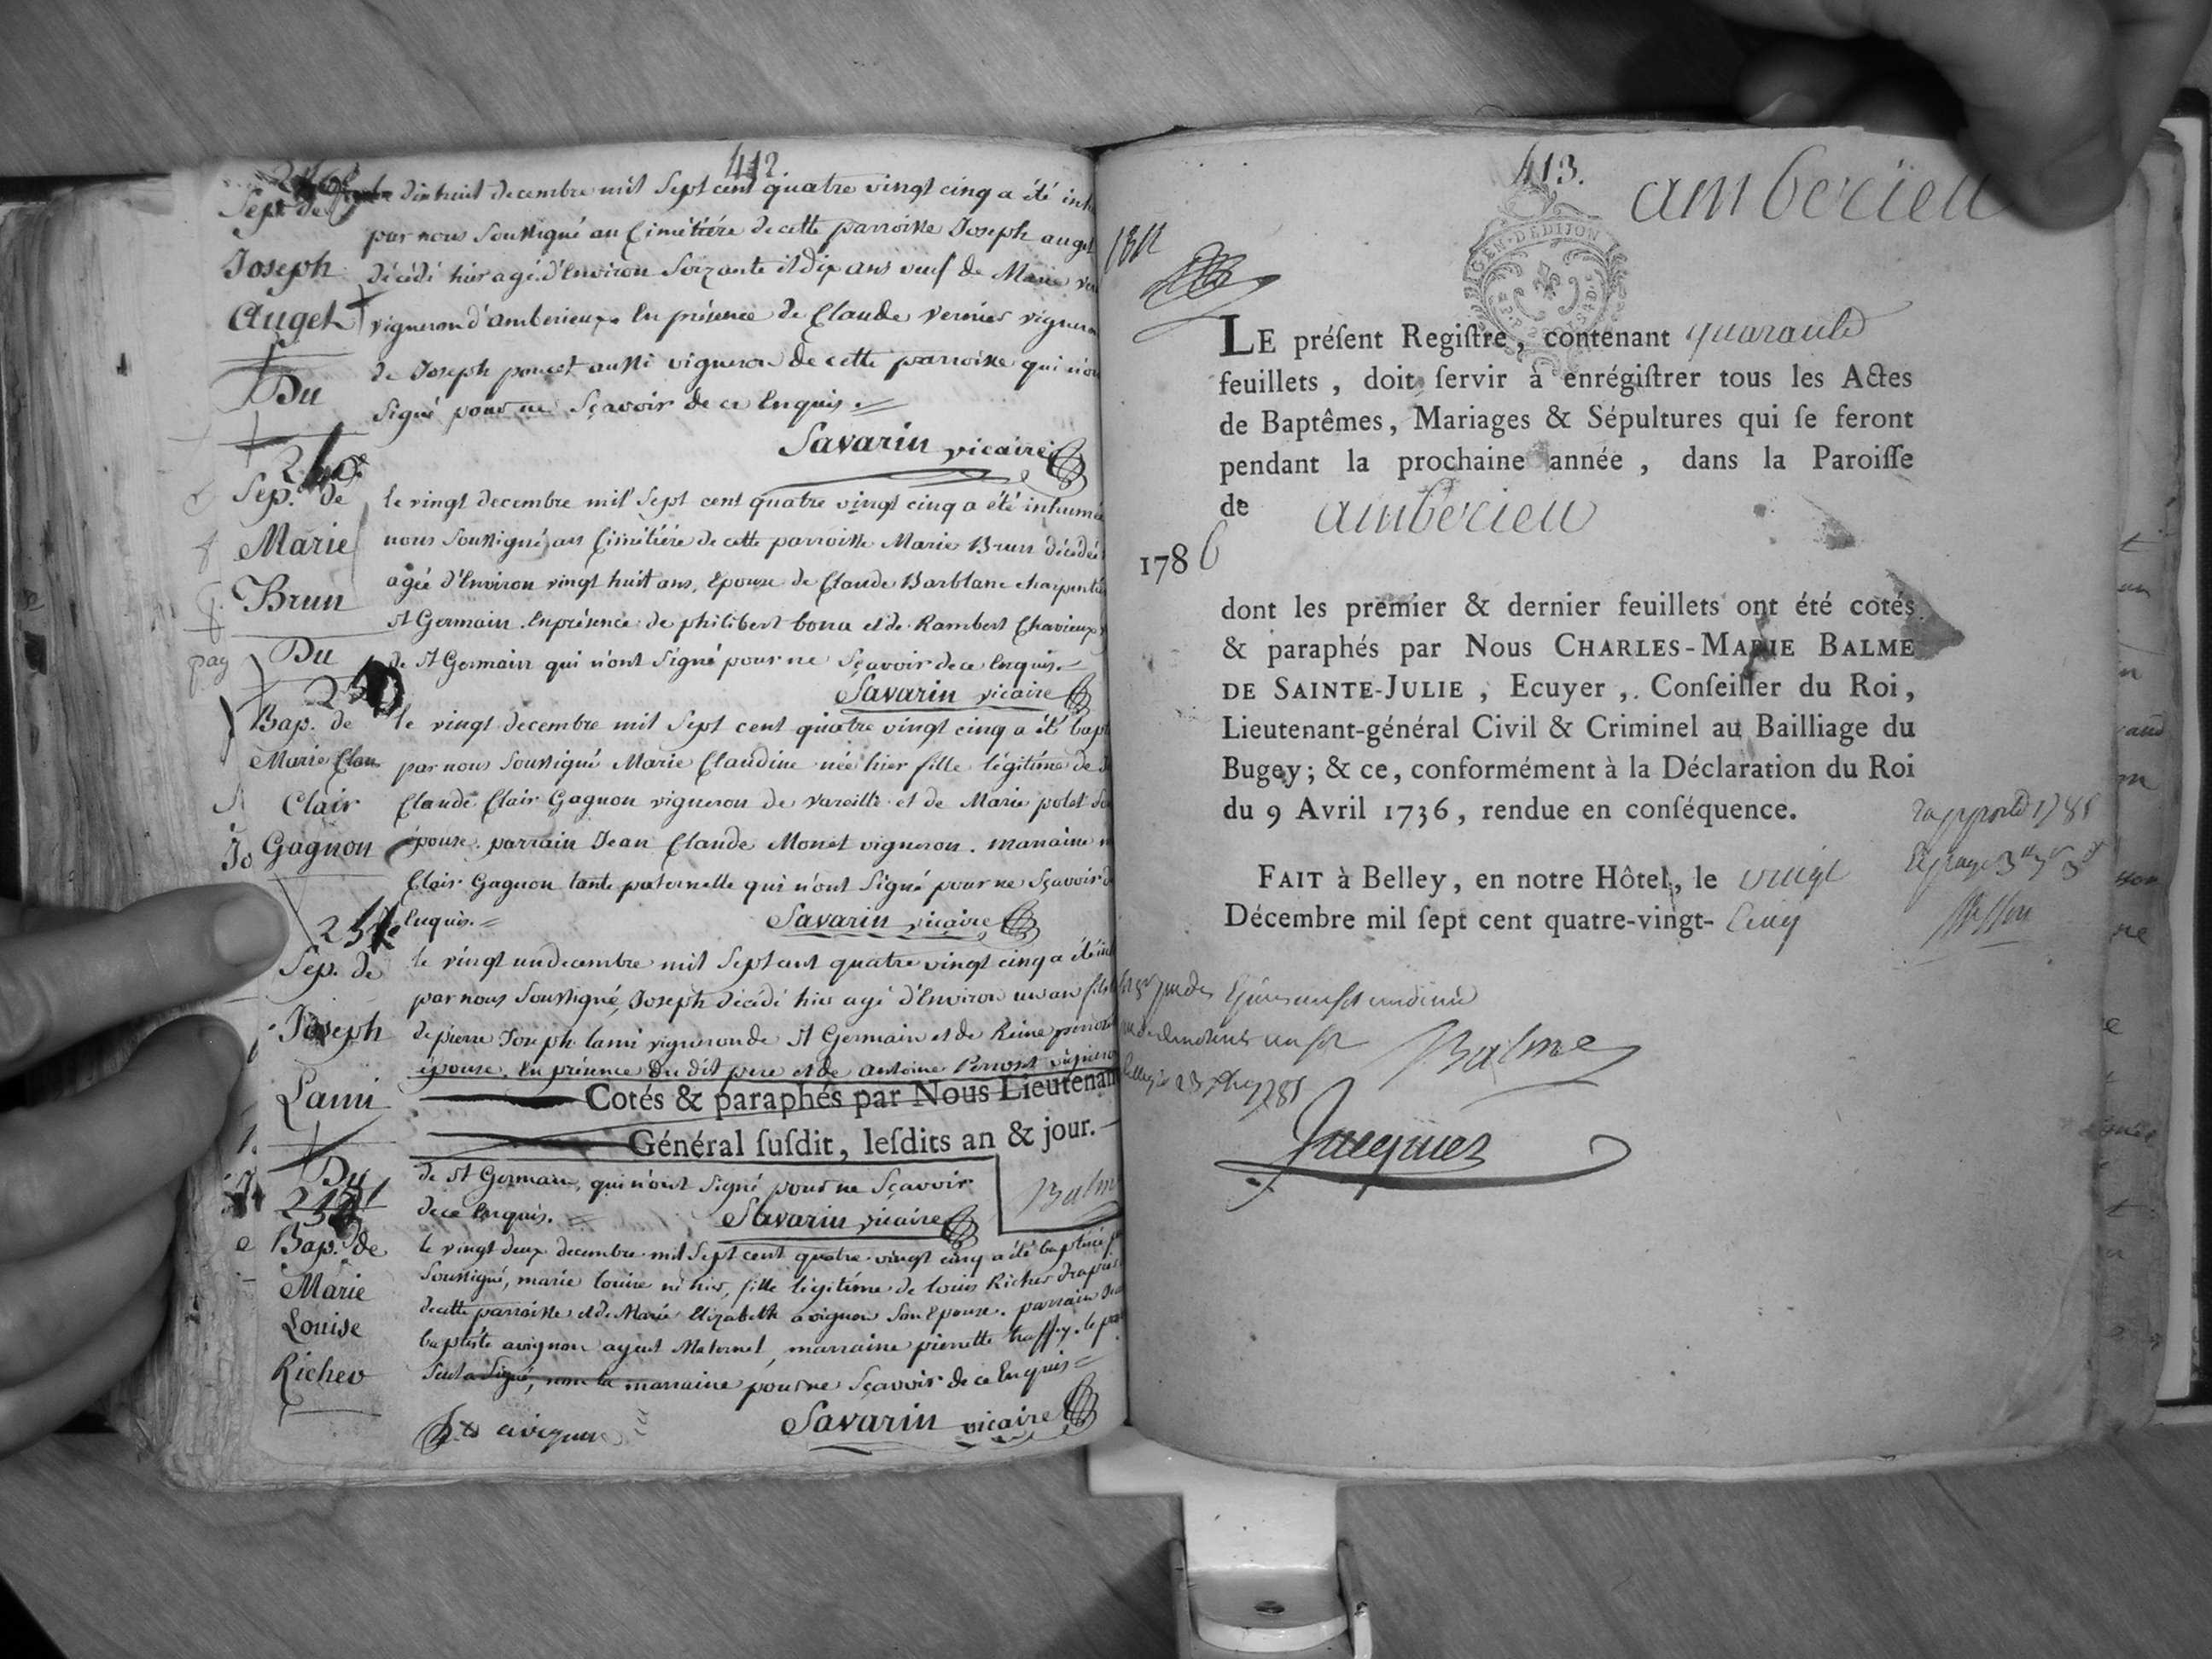 412.
Sep. de
Joseph
Auget
Du
dixhuit decembre mil Sept cent quatre vingt cinq a été
par nous Soussigné au Cimétiére de cette parroisse Joseph auget
décédé hier agé d'Environ Soixante et dix ans veuf de Marie
vigneron d'amberieux. En présence de Claude Vernier vigneron
de Joseph poncet aussi vigneron de cette parroisse qui n'ont
Signé pour ne Sçavoir de ce Enquis.
Savarin vicaire
Sep. de
Marie
Brun
Du
le vingt decembre mil Sept cent quatre vingt cinq a été inhumée
nous Soussigné au Cimétiére de cette parroisse Marie Brun décédée
agée d'Environ vingt huit ans, Epouse de Claude Barblanc charpentier
St Germain. En présence de philibert bona et de Rambert Chavieux
de St Germain qui n'ont Signé pour ne Sçavoir de ce Enquis.
Savarin vicaire
250
Bap. de
Marie Clau
Clair
Gagnon
le vingt decembre mil Sept cent quatre vingt cinq a été
par nous Soussigné Marie Claudine née hier fille légitime de
Claude Clair Gagnon vigneron de Vareille et de Marie polet
épouse. parrain Jean Claude Monet vigneron. marraine
Clair Gagnon tante paternelle qui n'ont Signé pour ne Sçavoir de
Enquis.
Savarin vicaire
251
Sep. de
Joseph
Lami
Du
le vingt un decembre mil Sept cent quatre vingt cinq a été
par nous Soussigné, Joseph décédé hier agé d'Environ un an fils
de pierre Joseph lami vigneron de St Germain et de Reine
épouse. En présence du dit pere et de antoine Perrozet vigneron
Cotés & paraphés par Nous Lieutenan
Général ſuſdit, leſdits an & jour.
de St Germain, qui n'ont Signé pour ne Sçavoir
de ce Enquis.
Savarin vicaire
Balm
Bap. de
Marie
Louise
Richer
le vingt deux decembre mil Sept cent quatre vingt cinq a été baptisé
Soussigné, marie louise né hier, fille légitime de louis Richer drapier
de cette parroisse et de Marie Elizabeth avignon Son Epouse. parrain
baptiste avignon ayeul Maternel, marraine pierrette
Seul a Signé, non la marraine pour ne Sçavoir de ce Enquis
avignon
Savarin vicaire
413.
amberieu
GEN. DE DIJON
LE préſent Regiſtre, contenant quarante
feuillets, doit ſervir à enrégiſtrer tous les Actes
de Baptêmes, Mariages & Sépultures qui ſe feront
pendant la prochaine année, dans la Paroiſſe
de amberieu
1786
dont les premier & dernier feuillets ont été cotés
& paraphés par Nous CHARLES-MARIE BALME
DE SAINTE-JULIE, Ecuyer, Conſeiller du Roi,
Lieutenant-général Civil & Criminel au Bailliage du
Bugey; & ce, conformément à la Déclaration du Roi
du 9 Avril 1736, rendue en conſéquence.
FAIT à Belley, en notre Hôtel, le vingt
Décembre mil ſept cent quatre-vingt-cinq
Balme
Jacques